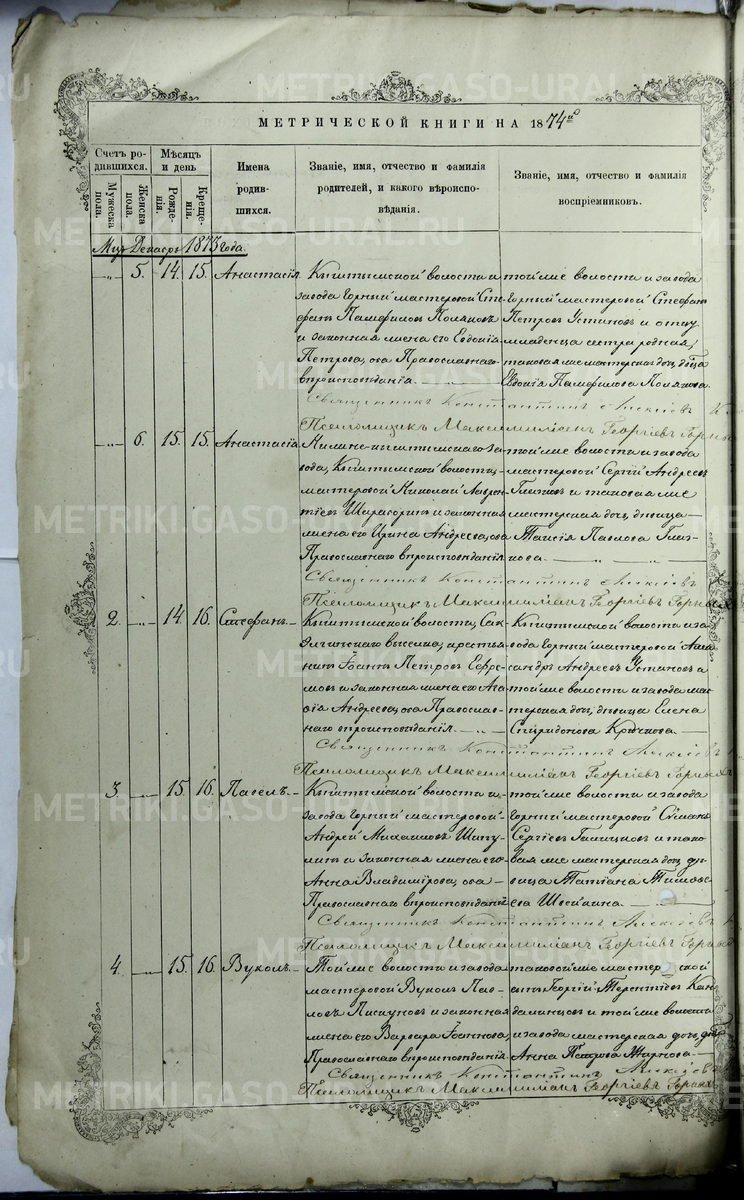 МЕТРИЧЕСКОЙ КНИГИ НА 1874й
Счетъ родившихся.
Мужеска пола.
Женска пола.
Мѣсяцъ и день
Рожденія.
Крещенія.
Имена родившихся.
Званіе, имя, отчество и фамилія родителей, и какого вѣроисповѣданія.
Званіе, имя, отчество и фамилія воспріемниковъ.
Декабрь 1873 года.
5. 14. 15. Анастасія
Кыштымской волости и
завода Горный мастеровой Сте-
фанъ Памфиловъ Поляковъ
и законная жена его Евдокія
Петрова, оба Православнаго
вѣроисповѣданія.
той же волости и завода
Горный мастеровой Стефанъ
Петровъ Устиновъ и отцу
младенца сестра родная,
таковая же мастерская дочь, дѣвица
Евдокія Памфилова Полякова.
Священникъ Константинъ Алексѣевъ
Псаломщикъ Максимиліанъ Георгіевъ
6. 15. 15. Анастасія
Нижне-Кыштымскаго за-
вода, Кыштымской волости,
мастеровой Николай Лаврен-
тіевъ и законная
жена его Ирина Андреева, оба
Православнаго вѣроисповѣданія
той же волости и завода
мастеровой Сергій Андреевъ
и таковая же
мастерская дочь, дѣвица
Таисія Павлова
Священникъ Константинъ Алексѣевъ
Псаломщикъ Максимиліанъ Георгіевъ
2. 14. 16. Стефанъ.
Кыштымской волости, Сак-
элгинскаго выселка, крестья-
нинъ Іоаннъ Петровъ Ефре-
мовъ и законная жена его Ага-
фія Андреева, оба Православ-
наго вѣроисповѣданія.
Кыштымской волости и за-
вода Горный мастеровой Алек-
сандръ Андреевъ Устиновъ и
той же волости и завода мас-
терская дочь, дѣвица Елена
Спиридонова Крючкова.
Священникъ Константинъ Алексѣевъ
Псаломщикъ Максимиліанъ Георгіевъ
3 15. 16. Павелъ.
Кыштымской волости и
завода Горный мастеровой
Андрей Михаиловъ Шипу-
линъ и законная жена его
Анна Владимірова, оба
Православнаго вѣроисповѣданія
той же волости и завода
Горный мастеровой
Сергіевъ и тако-
вая же мастерская дочь, дѣ-
вица Татіана
Священникъ Константинъ Алексѣевъ
Псаломщикъ Максимиліанъ Георгіевъ
4. 15. 16. Вуколъ.
Той же волости и завода
мастеровой Вуколъ Пав-
ловъ Пискуновъ и законная
жена его Варвара Іоаннова,
Православнаго вѣроисповѣданія.
таковой же мастерской
сынъ Георгій Терентіевъ Кан-
далинцовъ и той же волости
и завода мастерская дочь, дѣв.
Анна
Священникъ Константинъ Алексѣевъ
Псаломщикъ Максимиліанъ Георгіевъ
METRIKI.GASO-URAL.RU